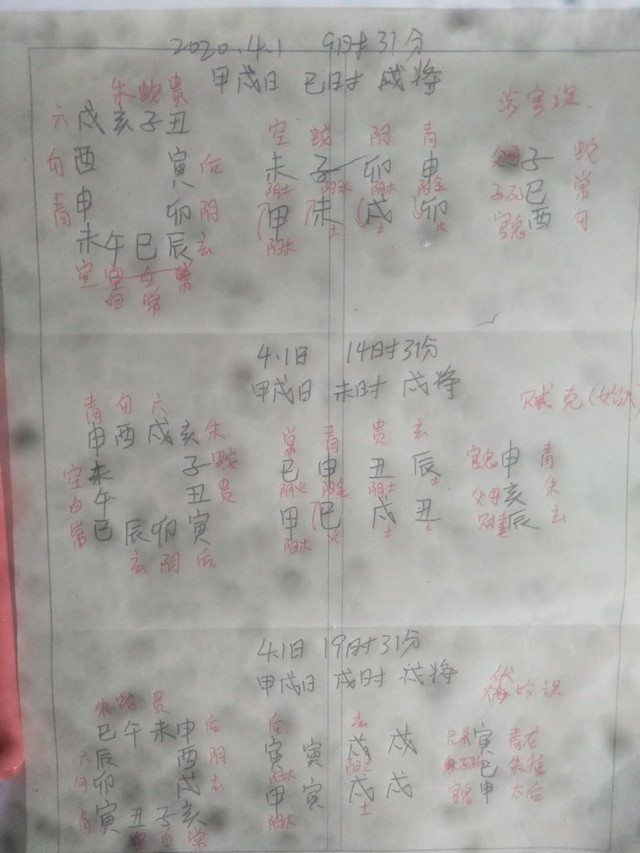 2020.4.1 9时31分
甲戌日 巳时 戌将
朱 蛇 贵
六 戌 亥 子 丑
空 蛇 阴 青
勾 酉 寅 后
未 子 卯 申
父母 子 蛇
青 申 卯 阴
甲 未 戌 卯
子孙 巳 常
未 午 巳 辰 玄
官鬼 酉 勾
空 白 常
4.1日 14时31分
甲戌日 未时 戌将
青 勾 六
申 酉 戌 亥 朱
常 青 贵 玄
空 未 子 蛇
巳 申 丑 辰
官鬼 申 青
白 午 丑 贵
父母 亥 朱
常 巳 辰 卯 寅
甲 巳 戌 丑
辰 玄
玄 阴 后
4.1日 19时31分
甲戌日 戌时 戌将
伏吟
朱 蛇 贵
巳 午 未 申 后
后 玄
六 辰 酉 阴
寅 寅 戌 戌
兄弟 寅 青龙
勾 卯 戌 玄
甲 寅 戌 戌
巳 朱
青 寅 丑 子 亥
官鬼 申
空 白 常